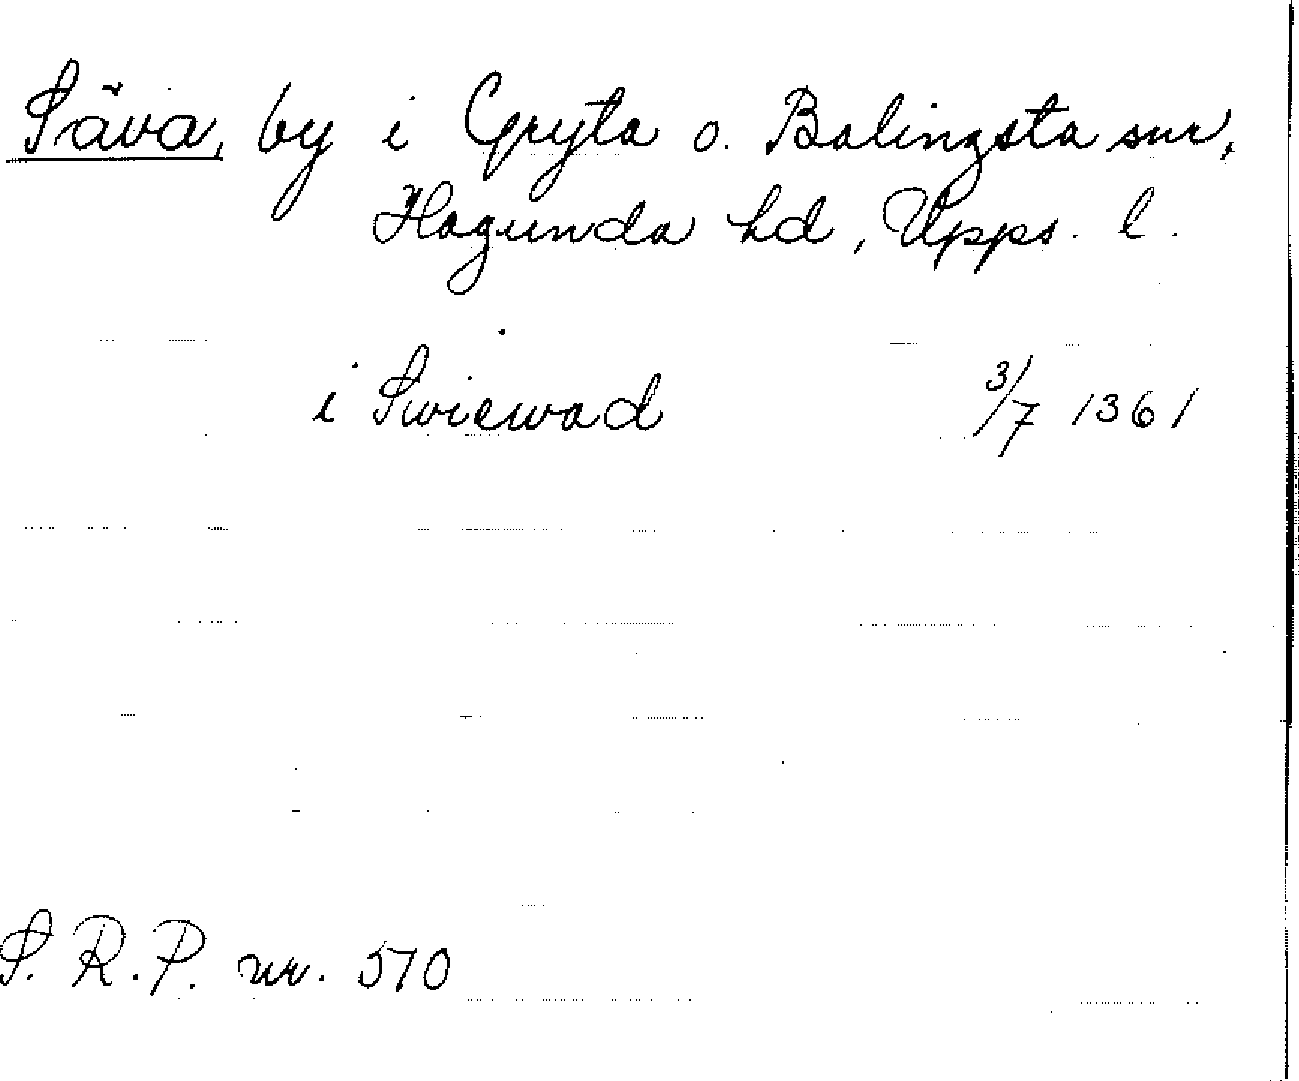 Säva, by i Gryta o. Balingsta snr,
Hagunda hd, Upps. l.
i Swiewad 3/7 1361
S. R. P. nr. 570